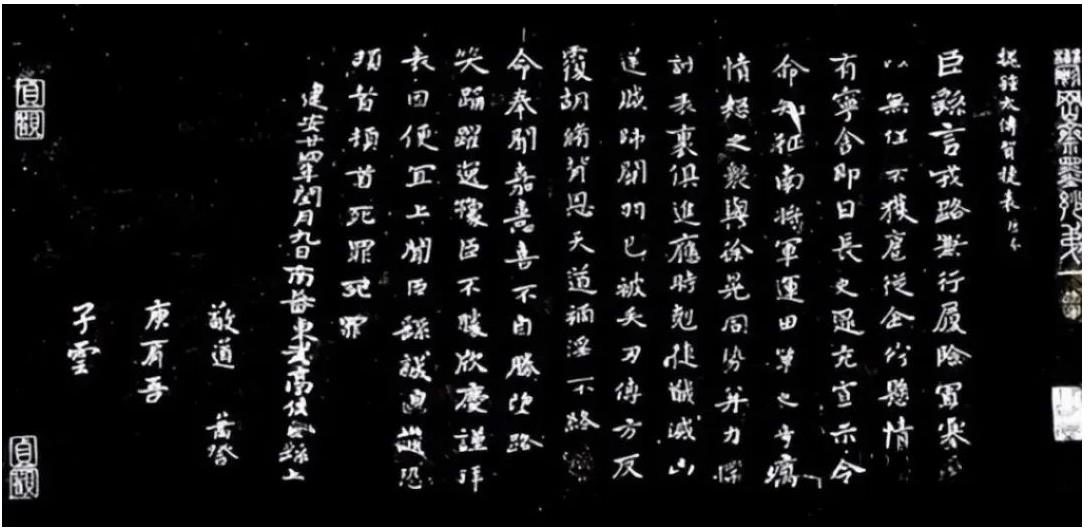 魏鍾太傅賀捷表
臣繇言戎路兼行履險冒寒臣
以無任不獲扈從企佇懸情
有寧舍即日長史逯充宣示令
命知征南將軍運田單之奇厲
憤怒之衆與徐晃同勢并力撲
討表裏俱進應時剋捷馘滅凶
逆賊帥關羽已被矢刃傅方反
覆胡脩背恩天道禍淫不終
今奉聞嘉憙喜不自勝望路
笑踊躍逸豫臣不勝欣慶謹拜
表因便宜上聞臣繇誠惶誠恐
頓首頓首死罪死罪
建安廿四年閏月九日南蕃東武亭侯臣繇上
敬道
庾肩吾
子雲
貞觀
貞觀